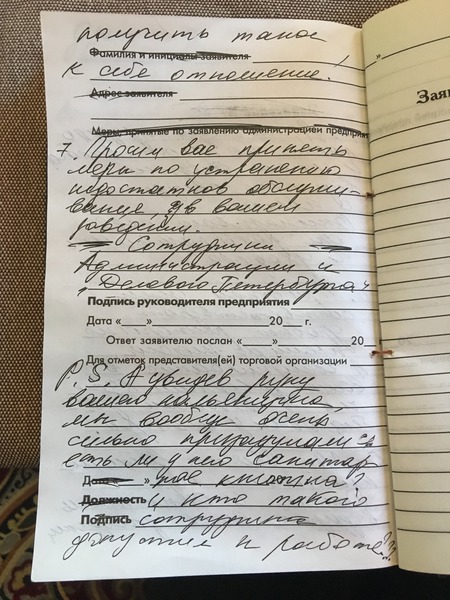 получить такое
Фамилия и инициалы заявителя
к себе отношение!
Адрес заявителя
Меры, принятые по заявлению администрацией предприят
7. Просим вас принять
меры по устранению
недостатков обслужи-
вание, в вашем
заведении.
Сотрудники
Администрации и
"Делового Петербурга"
Подпись руководителя предприятия
Дата «__» 20__ г.
Ответ заявителю послан «__» 20
Для отметок представителя(ей) торговой организации
P.S. А увидев руки
вашего кальянщика,
мы вообще очень
сильно призадумались
есть ли у него санитар
Дата « » ная книжка?
Должность и кто такого
Подпись сотрудника
допустил к работе?!?
Зая